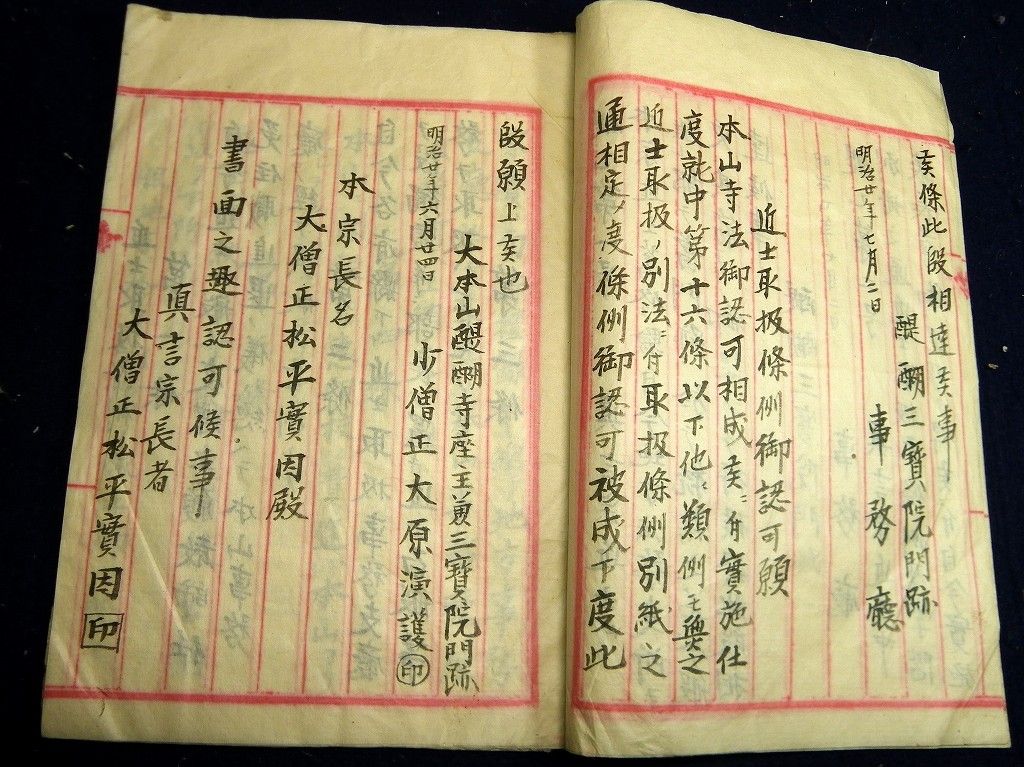 矦條此段相達矦事
明治廿年七月二日
醍醐三寶院門跡
事務廳
近士取扱條例御認可願
本山寺法御認可相成矦ニ付實施仕
度就中第十六條以下他ニ類例モ無之
近士取扱ノ別法ニ付取扱條例別紙之
通相定メ度條例御認可被成下度此
段願上矦也
大本山醍醐寺座主兼三寶院門跡
明治廿年六月廿四日
少僧正大原演護㊞
本宗長名
大僧正松平實因殿
書面之趣認可候事
真言宗長者
大僧正松平實因印